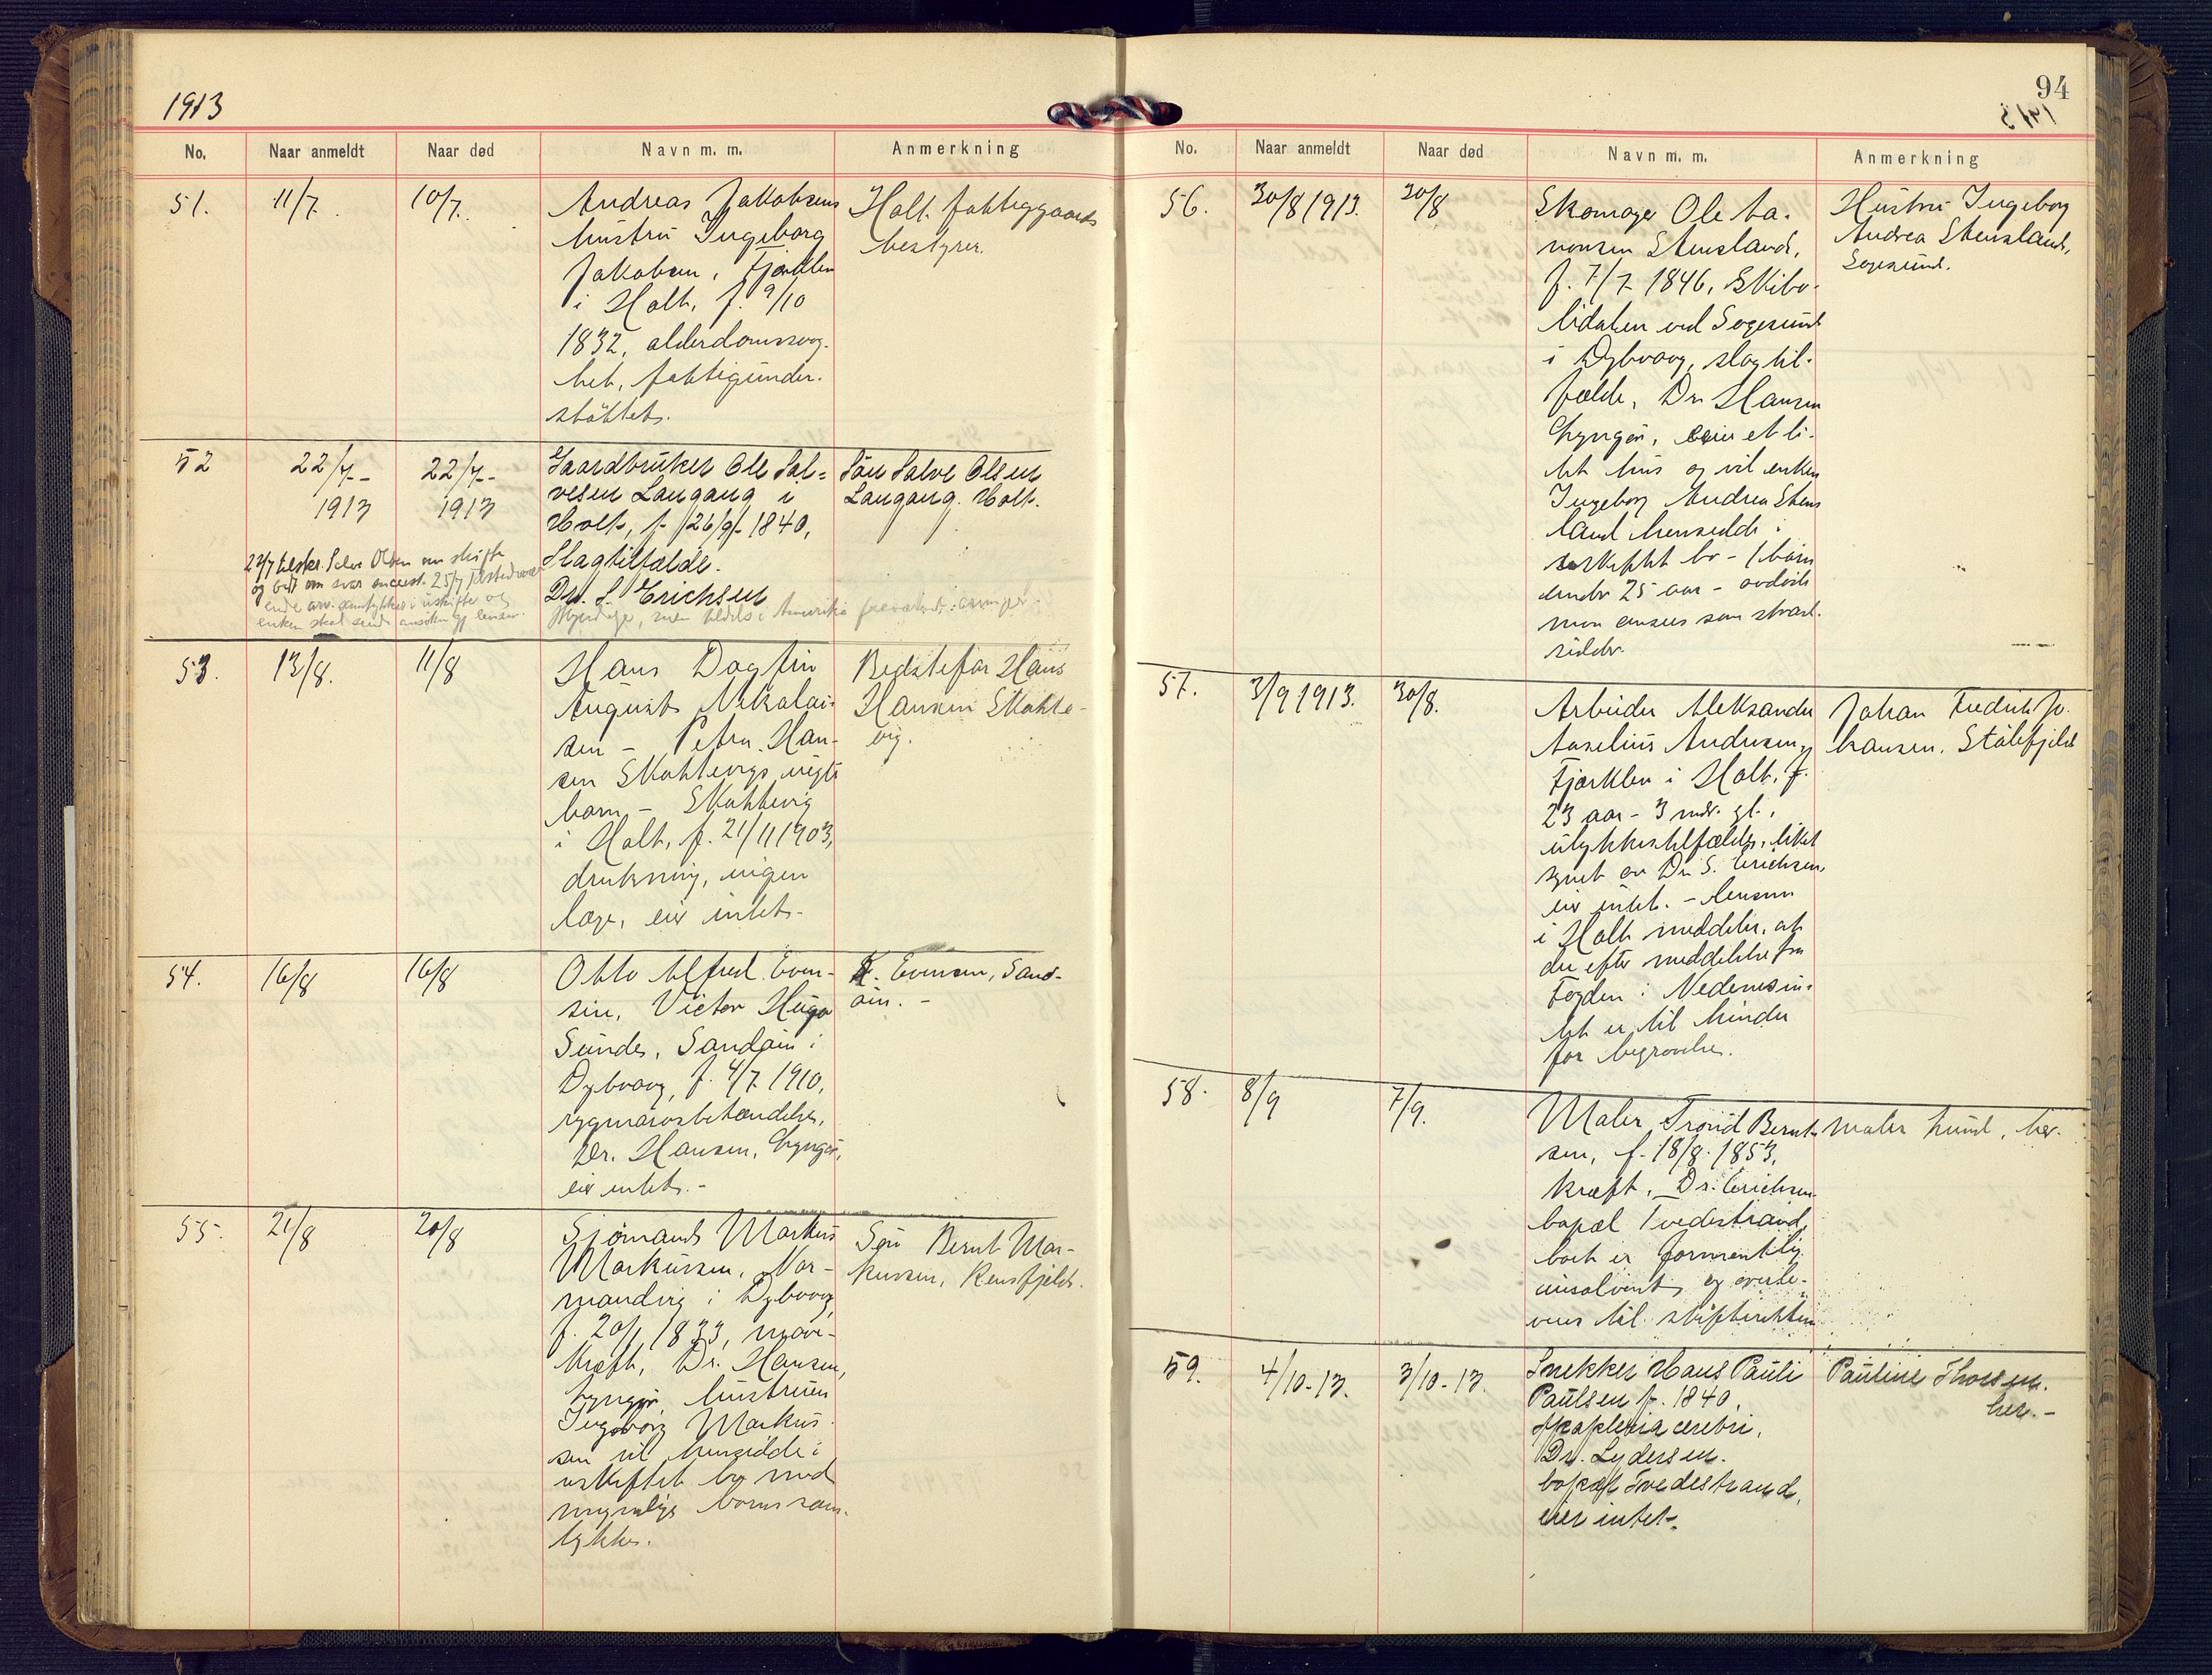 1913
No. Naar anmeldt Naar død Navn m. m. Anmerkning
51. 11/7. 10/7.
Andreas Jakobsens
hustru Ingeborg
Jakobsen, Fjærklen
i Holt, f. 9/10
1832, alderdomssvag-
het, fattigunder-
støttet.
Holt fattiggaards
bestyrer.
52 22/7- 1913 22/7- 1913
Gaardbruker Ole Sal-
vesen Langang i
Holt, f. 26/9- 1840,
Slagtilfælde.
Dr. S. Erichsen
Søn Salve Olsen
Langang. Holt.
22/7 tilskr. Salve Olsen om skifte
og bedt om svar 25/7
enken skal sende
Myndige, men tildels i Amerika
53. 13/8. 11/8
Hans Dagfin
August Nikolai-
sen - Petra Han-
sen Skottevigs uegte
barn - Skottevig
i Holt, f. 21/11 1903,
drukning, ingen
læge, eier intet.
Bedstefar Hans
Hansen Skotte-
vig.
54. 16/8 16/8
Otto Alfred Even-
sen, Victor Hugo
Sunde, Sandøen i
Dybvaag, f. 4/7 1910,
rygmarvsbetændelse,
Dr. Hansen, Lyngør,
eier intet. -
K. Evensen, Sand-
øen. -
55. 21/8 20/8
Sjømand Markus
Markussen, Nor-
mandvig i Dybvaag,
f. 20/1 1833, mave-
kræft, Dr. Hansen,
Lyngør, hustruen
Ingeborg Markus-
sen vil hensidde i
uskiftet bo med
myndige børns sam-
tykke.
Søn Bernt Mar-
kussen, Rensfjeld.
94
No. Naar anmeldt Naar død Navn m. m. Anmerkning
56. 30/8 1913. 30/8
Skomager Ole Aa-
nonsen Stensland,
f. 7/7 1846, Skibo-
lidalen ved Sagesund
i Dybvaag, slagtil-
fælde, Dr. Hansen
Lyngør, eier et li-
tet hus og vil enken
Ingeborg Andrea Stens
land hensidde i
uskiftet bo - 1 barn
under 25 aar - avdøde
man ansees som skræd-
Hustru Ingeborg
Andrea Stensland,
Sagesund.
57. 3/9 1913. 30/8.
Arbeider Aleksander
Anselius Andersen,
Fjærklen i Holt, f.
23 aar - 3 mdr. gl.,
ulykkestilfælde, liket
synet av Dr. S. Erichsen,
eier intet. - Lensm.
i Holt meddeler, at
der efter meddelelse fra
Fogden i Nedenes in-
tet er til hinder
for begravelse.
Johan Fredrik Jo-
hansen, Stølefjeld
58. 8/9 7/9.
Maler Trond Bernt-
sen, f. 18/8. 1853,
kræft, Dr. Erichsen
bopæl Tvedestrand,
boet er formentlig
insolvent og overle-
veres til skifteretten
Maler Lund, her.
59. 4/10-13. 3/10-13.
Snekker Hans Pauli
Paulsen f. 1840,
Apoplexia cerebri,
Dr. Lydersen.
bopæl Tvedestrand,
eier intet.
Pauline Thorsen.
her. -